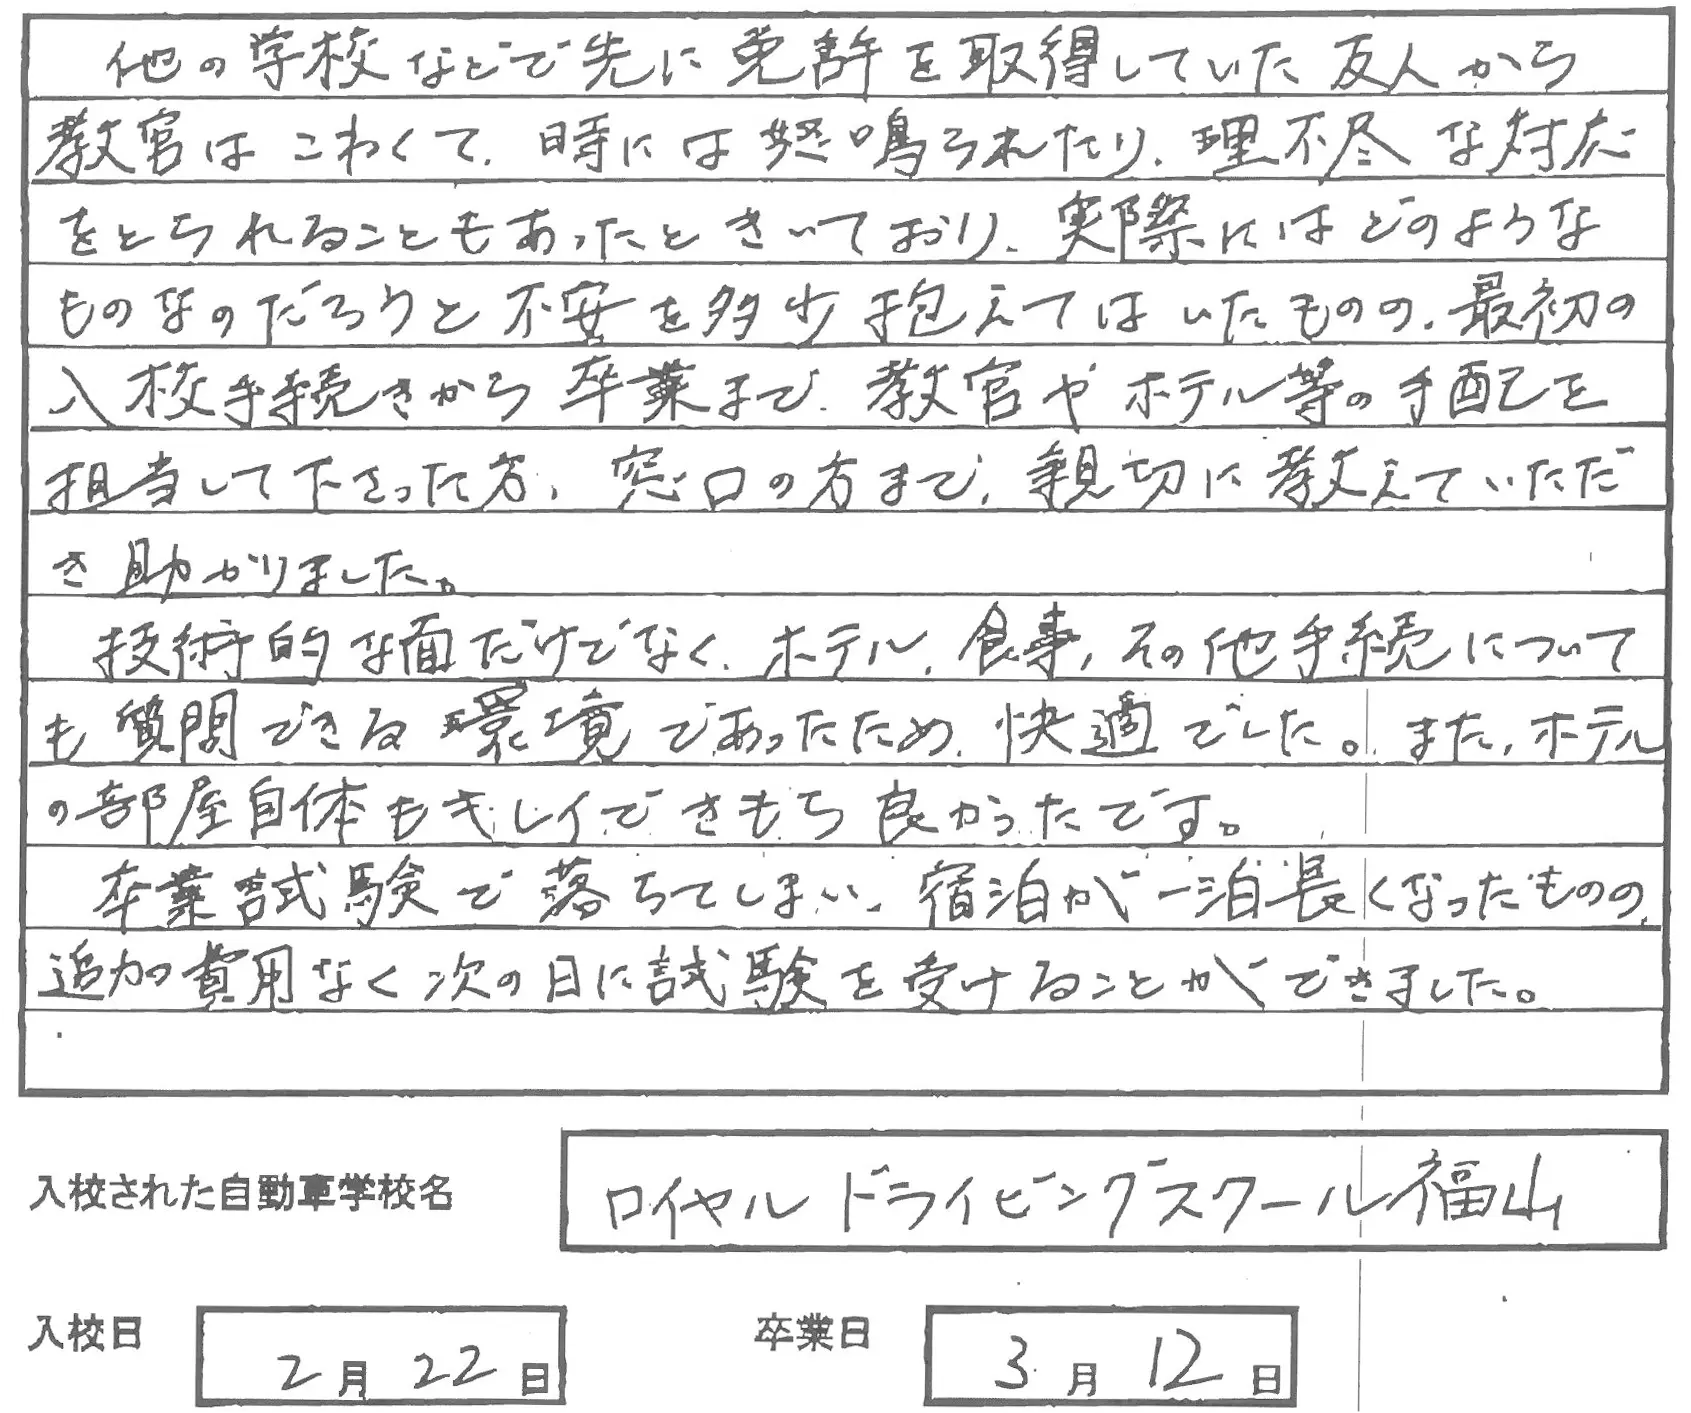 他の学校などで先に免許を取得していた友人から
教官はこわくて、時には怒鳴られたり、理不尽な対応
をとられることもあったときいており、実際にはどのような
ものなのだろうと不安を多少抱えてはいたものの、最初の
入校手続きから卒業まで、教官やホテル等の手配を
担当して下さった方、窓口の方まで、親切に教えていただ
き助かりました。
技術的な面だけでなく、ホテル、食事、その他手続について
も質問できる環境であったため、快適でした。また、ホテル
の部屋自体もキレイできもち良かったです。
卒業試験で落ちてしまい、宿泊が一泊長くなったものの、
追加費用なく次の日に試験を受けることができました。
入校された自動車学校名 ロイヤルドライビングスクール福山
入校日 2月22日 卒業日 3月12日